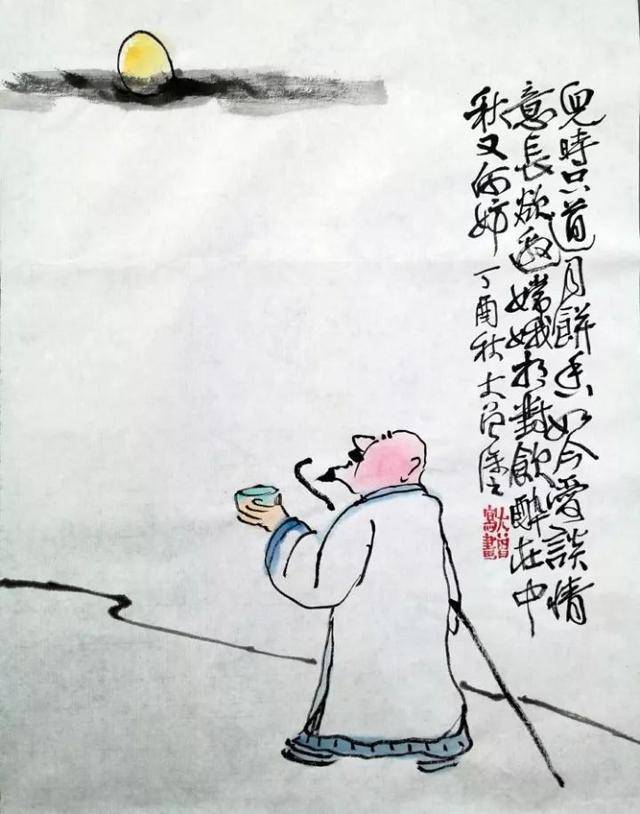 兒時只道月餅香如今愛談情
意長欲邀嫦娥相對飲醉在中
秋又何妨 丁酉秋大